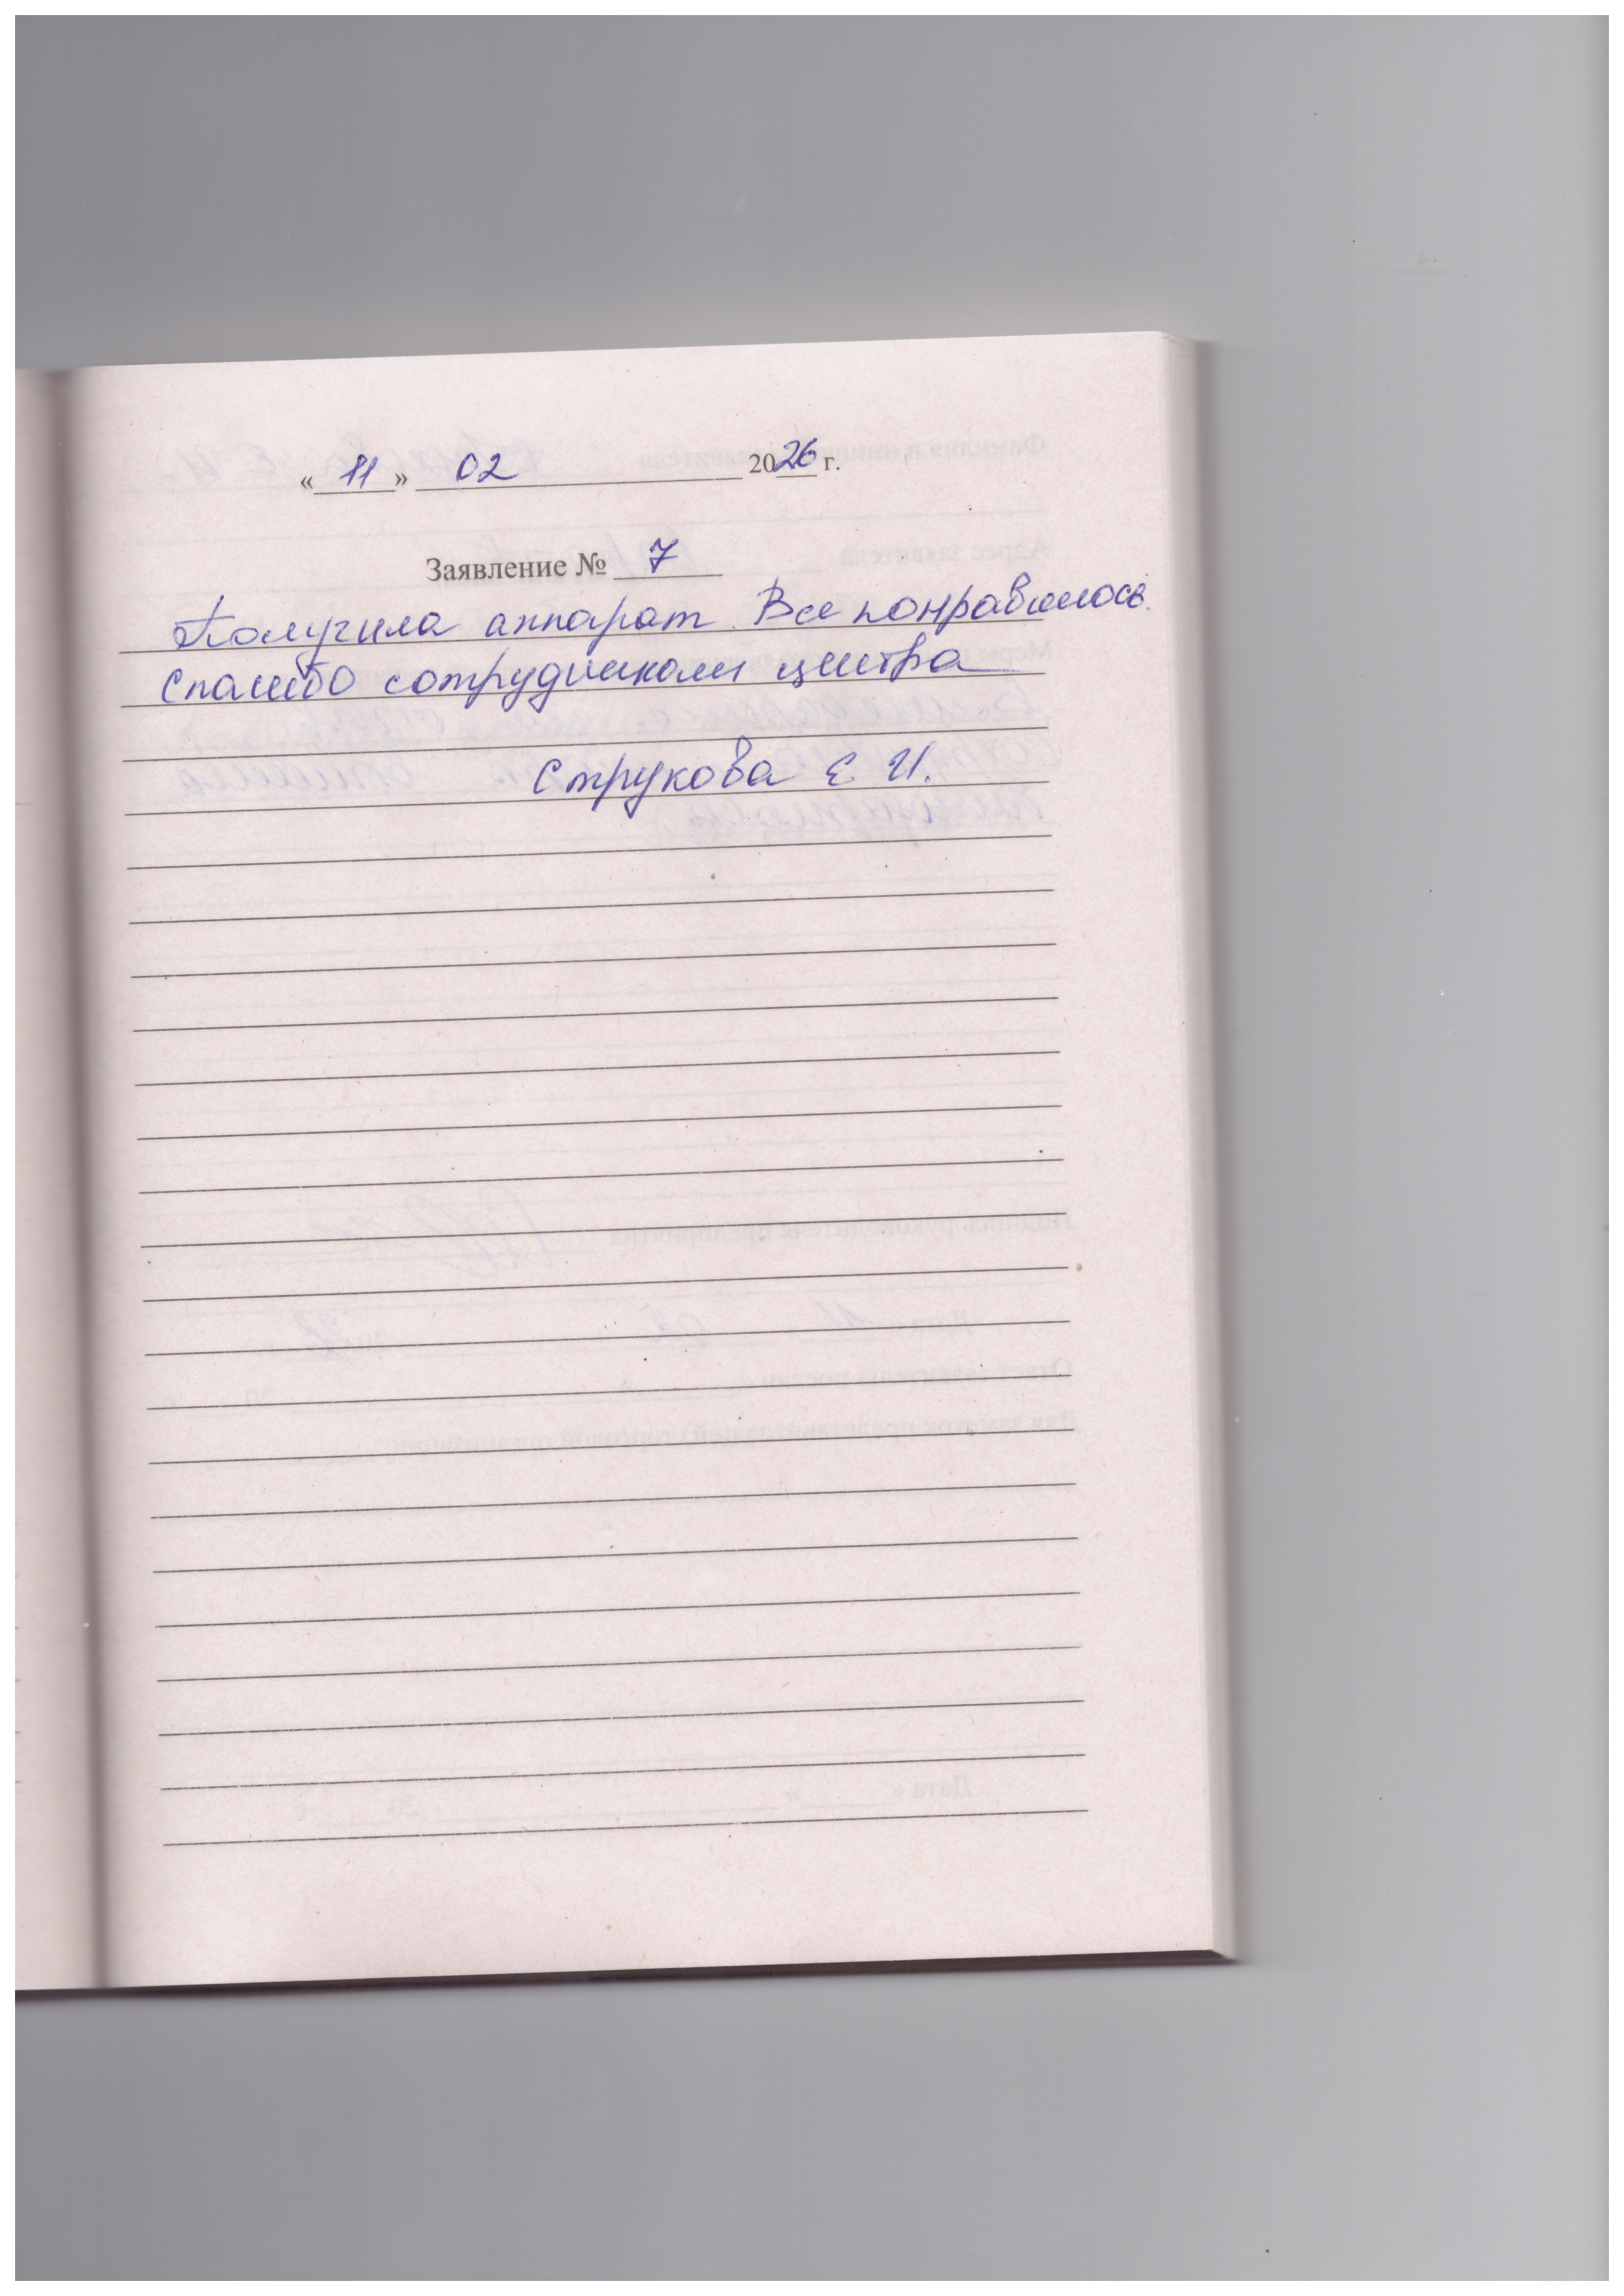 «11» 02 2026 г.
Заявление № 7
Получила аппарат. Все понравилось.
Спасибо сотрудникам центра
Струкова Е. И.